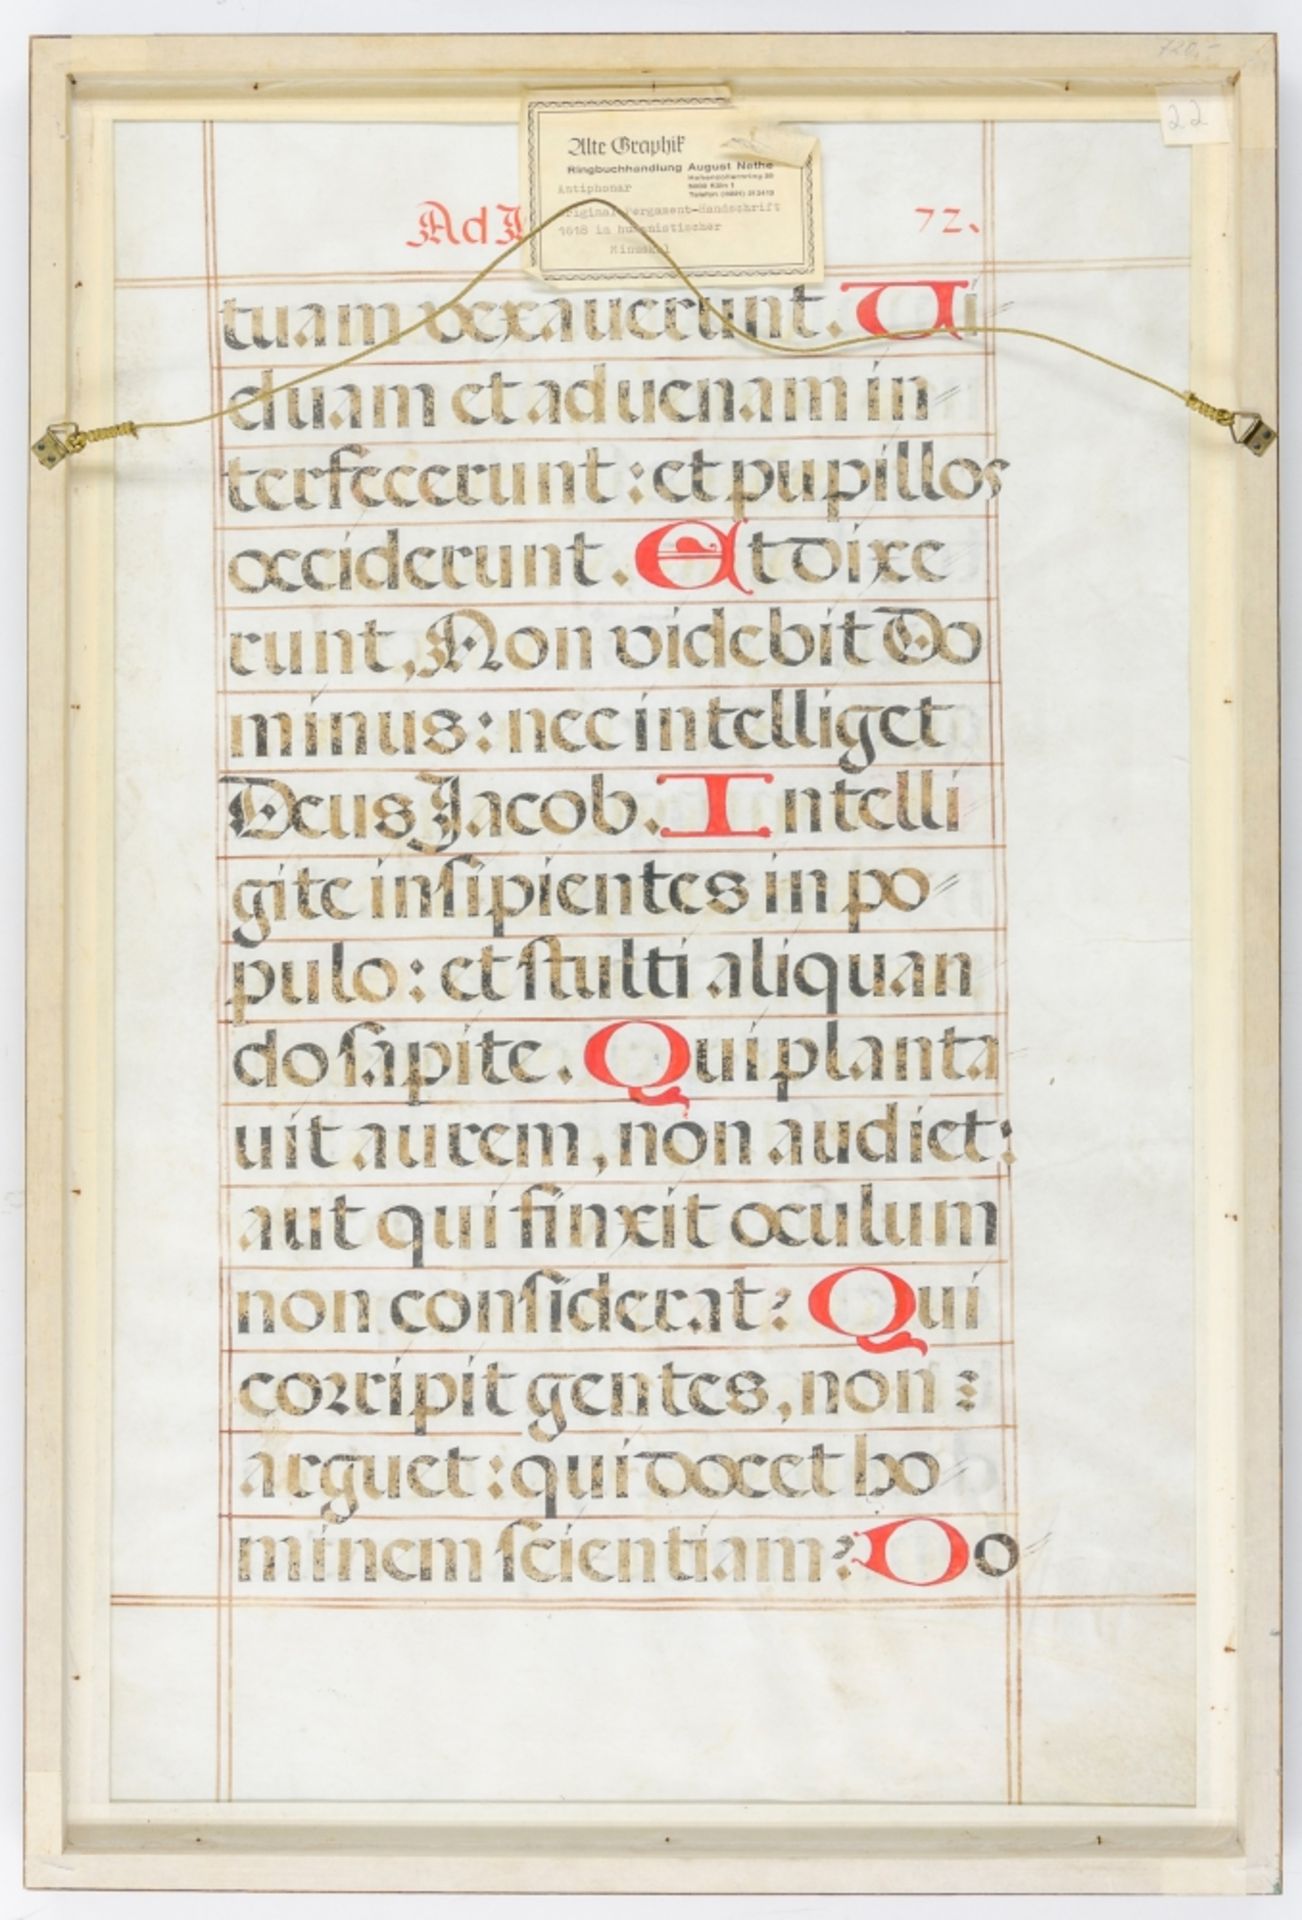 720,-
22
Alte Graphik
Ringbuchhandlung August Nethe
Hohenzollernring
5000 Köln 1
Antiphonar
Original Pergament-Handschrift
1618 in humanistischer
Minuskel
Ad
72.
tuam vexauerunt. Ui
duam et aduenam in
terfecerunt: et pupillos
occiderunt. Et dixe
runt, Non videbit Do
minus: nec intelliget
Deus Jacob. Intelli
gite inſipientes in po
pulo: et ſtulti aliquan
do ſapite. Qui planta
uit aurem, non audiet:
aut qui finxit oculum
non conſiderat? Qui
corripit gentes, non
arguet: qui docet ho
minem ſcientiam? Do